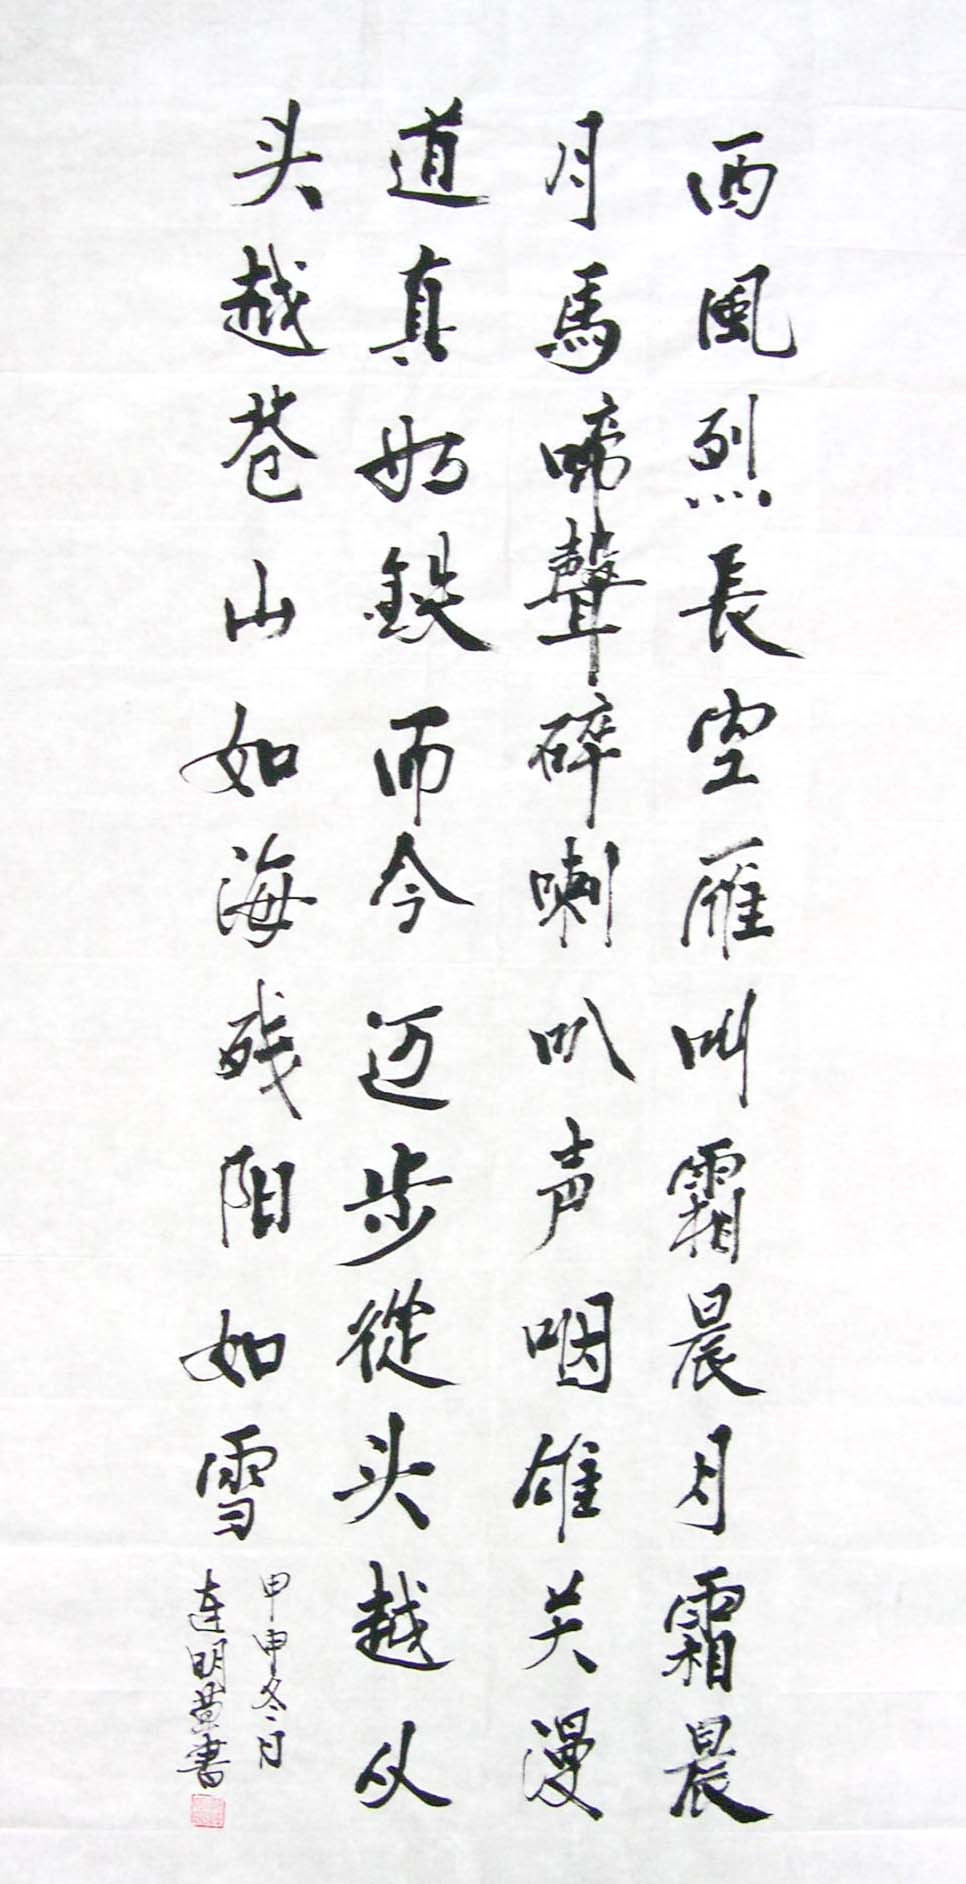 西風烈長空雁叫霜晨月霜晨
月馬啼聲碎喇叭声咽雄关漫
道真如鉄而今迈步從头越从
头越苍山如海残阳如雪
甲申冬月
连明黄書